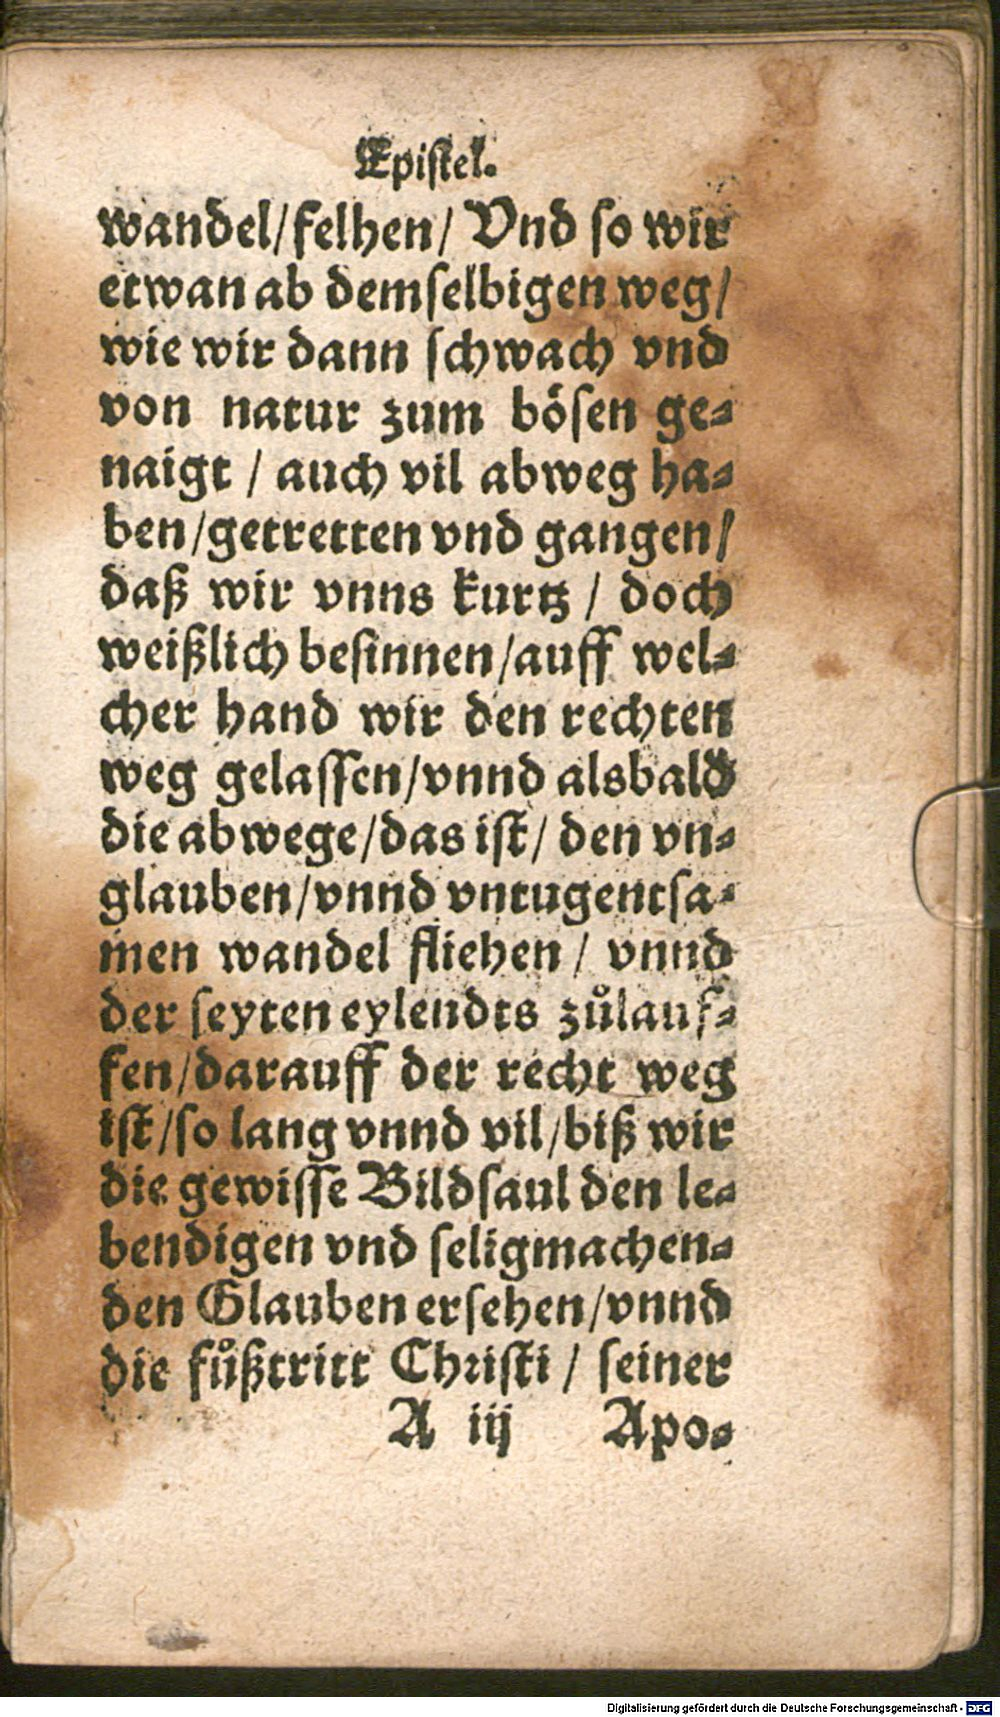 Epistel.
wandel/felhen/ Vnd so wir
etwan ab demselbigen weg/
wie wir dann schwach vnd
von natur zum bösen ge-
naigt / auch vil abweg ha-
ben/getretten vnd gangen/
daß wir vnns kurtz / doch
weißlich besinnen/auff wel-
cher hand wir den rechten
weg gelassen/vnnd alsbald
die abwege/das ist/ den vn-
glauben/vnnd vntugentsa-
men wandel fliehen / vnnd
der seyten eylendts zůlauf-
fen/darauff der recht weg
ist/so lang vnnd vil/biß wir
die gewisse Bildsaul den le-
bendigen vnd seligmachen-
den Glauben ersehen/vnnd
die fůßtritt Christi / seiner
A iij Apo-
Digitalisierung gefördert durch die Deutsche Forschungsgemeinschaft - DFG